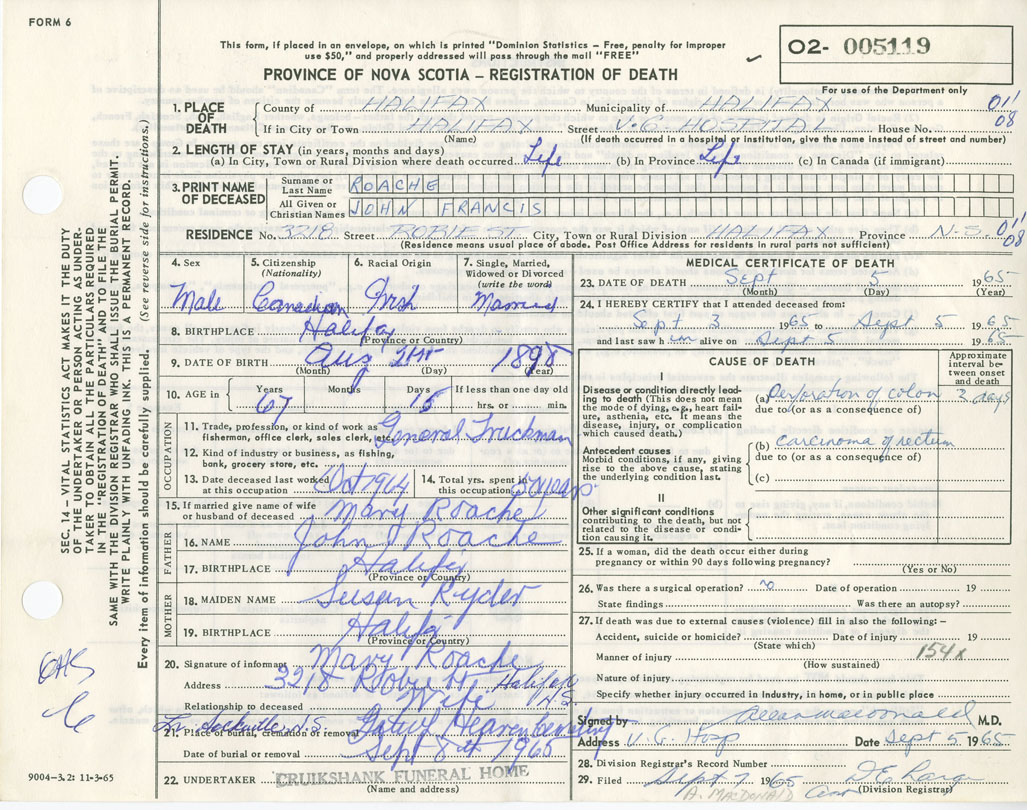 FORM 6
This form, if placed in an envelope, on which is printed "Dominion Statistics – Free, penalty for improper
use $50," and properly addressed will pass through the mail "FREE"
O2- 005119
For use of the Department only
PROVINCE OF NOVA SCOTIA – REGISTRATION OF DEATH
1. PLACE OF DEATH
County of HALIFAX Municipality of HALIFAX 01'
If in City or Town HALIFAX Street V.G. HOSPITAL House No. 08
(Name) (If death occurred in a hospital or institution, give the name instead of street and number)
2. LENGTH OF STAY (in years, months and days)
(a) In City, Town or Rural Division where death occurred Life (b) In Province Life (c) In Canada (if immigrant)
3. PRINT NAME OF DECEASED
Surname or Last Name ROACHE
All Given or Christian Names JOHN FRANCIS
RESIDENCE No. 3218 Street ROBIE ST City, Town or Rural Division HALIFAX Province N-S. 01' 08
(Residence means usual place of abode. Post Office Address for residents in rural parts not sufficient)
4. Sex
Male
5. Citizenship (Nationality)
Canadian
6. Racial Origin
Irish
7. Single, Married, Widowed or Divorced (write the word)
Married
8. BIRTHPLACE Halifax
(Province or Country)
9. DATE OF BIRTH Aug 21st 1898
(Month) (Day) (Year)
10. AGE in
Years 67 Months Days 15 If less than one day old
hrs. or min.
OCCUPATION
11. Trade, profession, or kind of work as
fisherman, office clerk, sales clerk, etc. General Truckman
12. Kind of industry or business, as fishing,
bank, grocery store, etc.
13. Date deceased last worked
at this occupation Oct 1964
14. Total yrs. spent in
this occupation 50 years
15. If married give name of wife
or husband of deceased Mary Roache
FATHER
16. NAME John Roache
17. BIRTHPLACE Halifax
(Province or Country)
MOTHER
18. MAIDEN NAME Susan Ryder
19. BIRTHPLACE Halifax
(Province or Country)
20. Signature of informant Mary Roache
Address 3218 Robie St. Halifax N.S.
Relationship to deceased Wife
Sackville N.S.
21. Place of burial, cremation or removal Gate of Heaven Cemetery
Date of burial or removal Sept 8th 1965
22. UNDERTAKER CRUIKSHANK FUNERAL HOME
(Name and address)
MEDICAL CERTIFICATE OF DEATH
23. DATE OF DEATH Sept 5 1965
(Month) (Day) (Year)
24. I HEREBY CERTIFY that I attended deceased from:
Sept 3 1965 to Sept 5 1965
and last saw him alive on Sept 5 1965
CAUSE OF DEATH
Approximate interval between onset and death
I
Disease or condition directly leading to death (This does not mean the mode of dying, e.g., heart failure, asthenia, etc. It means the disease, injury, or complication which caused death.)
(a) Perforation of colon 3 days
due to (or as a consequence of)
Antecedent causes
Morbid conditions, if any, giving rise to the above cause, stating the underlying condition last.
(b) carcinoma of rectum
due to (or as a consequence of)
(c)
II
Other significant conditions
contributing to the death, but not related to the disease or condition causing it.
25. If a woman, did the death occur either during
pregnancy or within 90 days following pregnancy?
(Yes or No)
26. Was there a surgical operation? no Date of operation 19
State findings Was there an autopsy?
27. If death was due to external causes (violence) fill in also the following: –
Accident, suicide or homicide? Date of injury 19
(State which)
Manner of injury 154x
(How sustained)
Nature of injury
Specify whether injury occurred in industry, in home, or in public place
Signed by Allan macdonald M.D.
Address V.G. Hosp Date Sept 5 1965
28. Division Registrar's Record Number
29. Filed Sept 7 1965
(Division Registrar)
A. MACDONALD
SEC. 14 – VITAL STATISTICS ACT MAKES IT THE DUTY
OF THE UNDERTAKER OR PERSON ACTING AS UNDER-
TAKER TO OBTAIN ALL THE PARTICULARS REQUIRED
IN THE "REGISTRATION OF DEATH" AND TO FILE THE
SAME WITH THE DIVISION REGISTRAR WHO SHALL ISSUE THE BURIAL PERMIT.
WRITE PLAINLY WITH UNFADING INK. THIS IS A PERMANENT RECORD.
Every item of information should be carefully supplied. (See reverse side for instructions.)
9004-3.2: 11-3-65